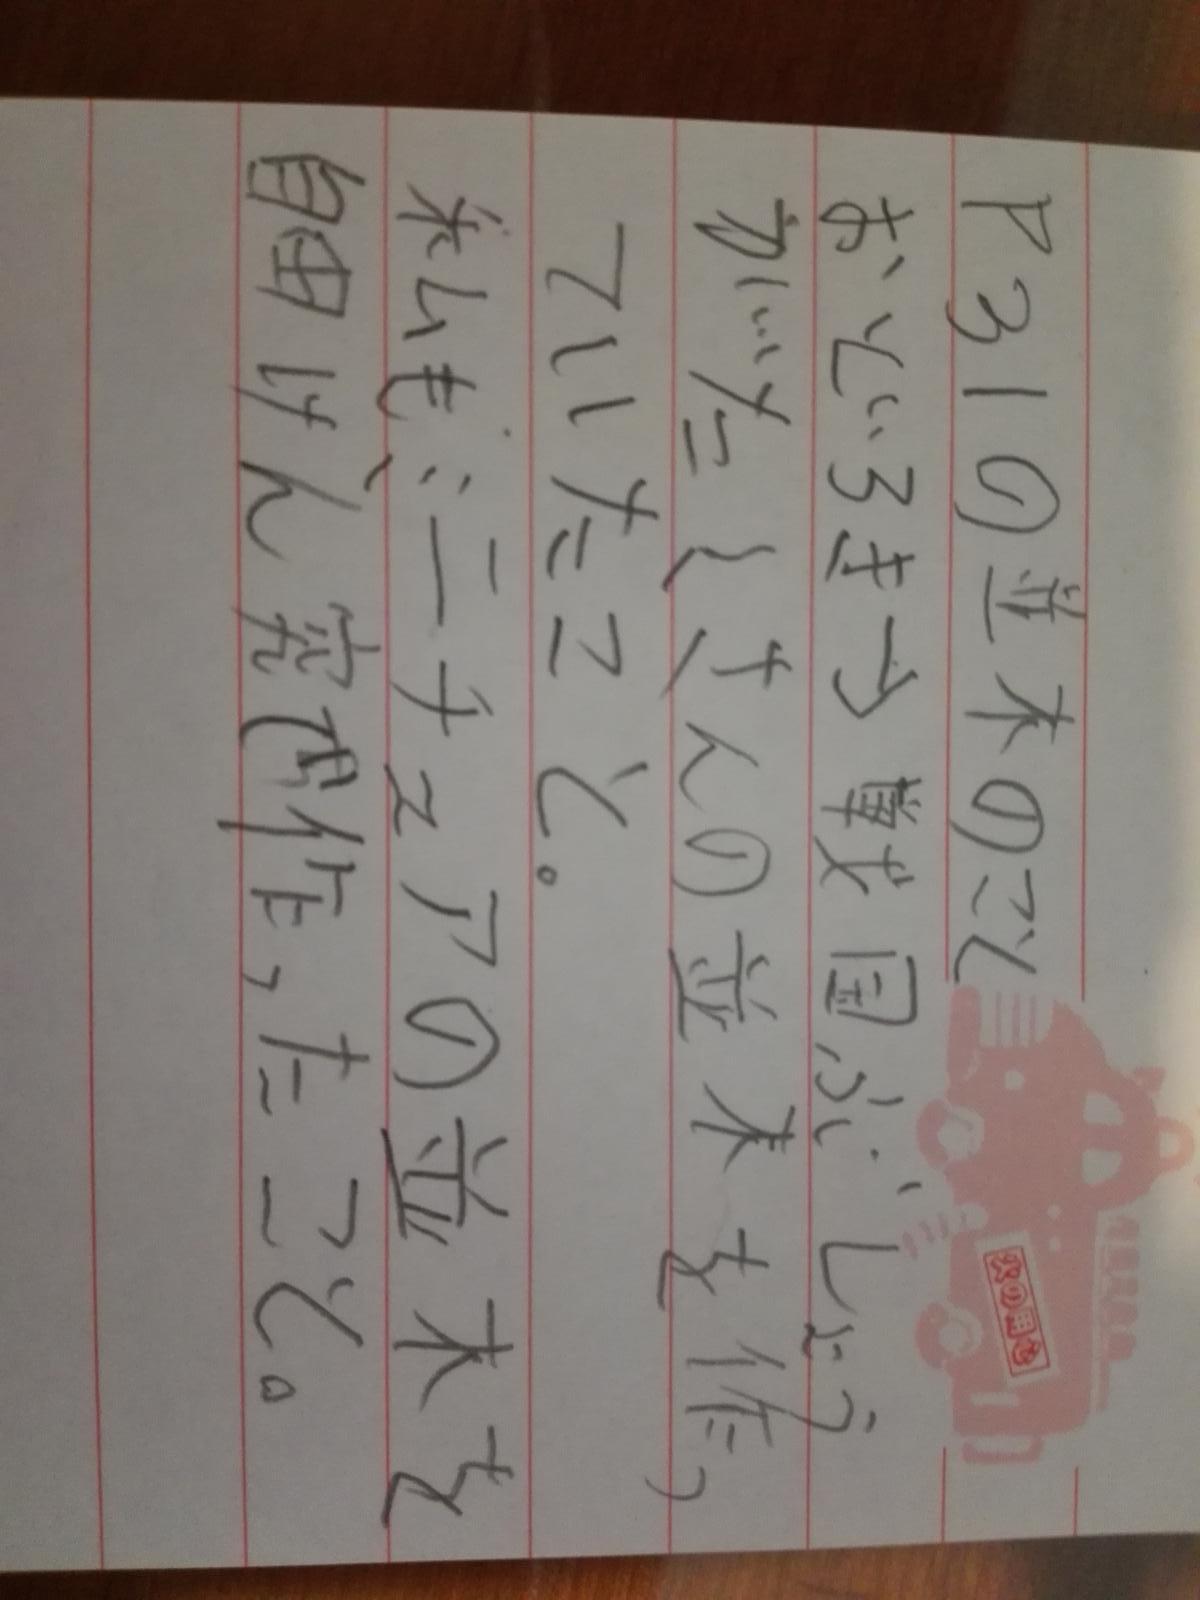 P31の並木のこと
おどろき→戦国ぶしょう
がたくさんの並木を作っ
ていたこと。
私もミニチュアの並木を
自由けん究で作ったこと。